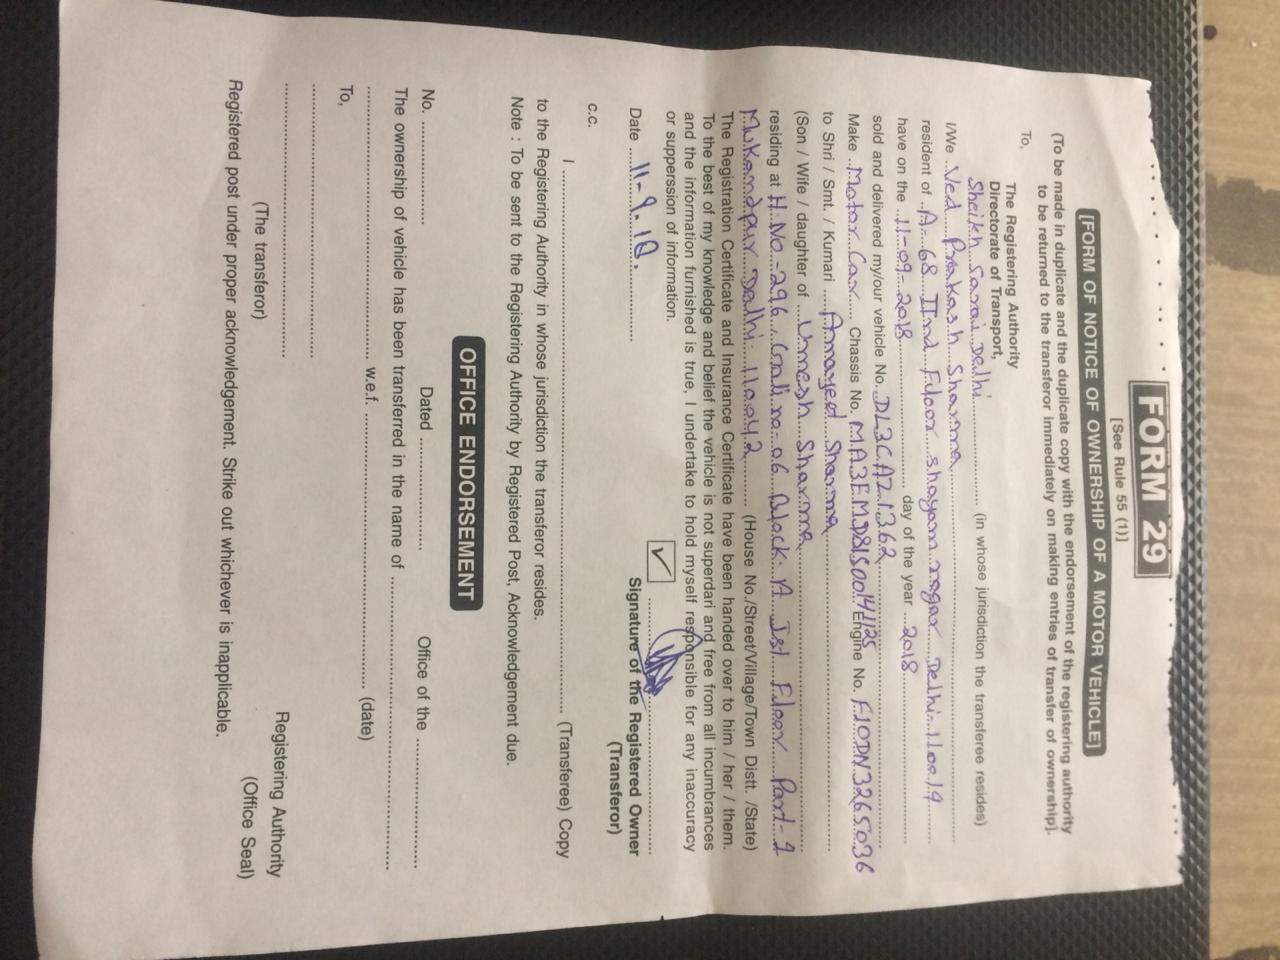 FORM 29
[See Rule 55 (1)]
[FORM OF NOTICE OF OWNERSHIP OF A MOTOR VEHICLE]
(To be made in duplicate and the duplicate copy with the endorsement of the registering authority
to be returned to the transferor immediately on making entries of transfer of ownership].
To,
The Registering Authority
Directorate of Transport,
Sheikh Sarai Delhi (in whose jurisdiction the transferee resides)
I/We Ved Prakash Sharma
resident of A-68 IInd Floor Shayam nagar Delhi-110019
have on the 11-09-2018 day of the year 2018
sold and delivered my/our vehicle No. DL3CAZ1362
Make Motor Car Chassis No. MA3FMDS1S00141125 Engine No. F10DN3265036
to Shri / Smt. / Kumari Anmayed Sharma
(Son / Wife / daughter of Umesh Sharma
residing at H.No-296, Gali no-06 Block-A Ist Floor Part-1
Mukandpur Delhi 110042 (House No./Street/Village/Town Distt. /State)
The Registration Certificate and Insurance Certificate have been handed over to him / her / them.
To the best of my knowledge and belief the vehicle is not superdari and free from all incumbrances
and the information furnished is true, I undertake to hold myself responsible for any inaccuracy
or supperssion of information.
Date 11-9-18.
Signature of the Registered Owner
(Transferor)
c.c.
I (Transferee) Copy
to the Registering Authority in whose jurisdiction the transferor resides.
Note : To be sent to the Registering Authority by Registered Post, Acknowledgement due.
OFFICE ENDORSEMENT
No. Dated Office of the
The ownership of vehicle has been transferred in the name of
w.e.f. (date)
To,
(The transferor)
Registering Authority
(Office Seal)
Registered post under proper acknowledgement. Strike out whichever is inapplicable.